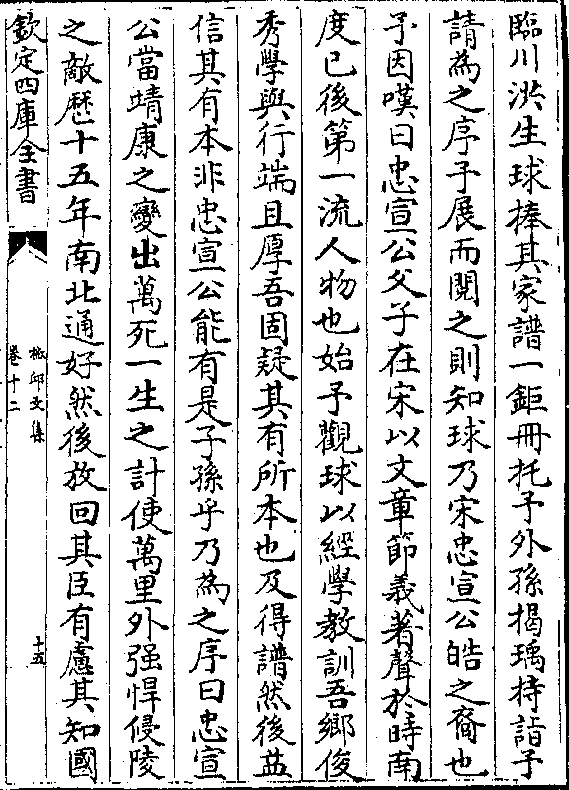 臨川洪生球捧其家譜一鉅冊托予外孫揭瑀持詣予
請為之序予展而閱之則知球乃宋忠宣公皓之裔也
予因嘆曰忠宣公父子在宋以文章節義著聲於時南
度已後第一流人物也始予觀球以經學教訓吾鄉俊
秀學與行端且厚吾固疑其有所本也及得譜然後益
信其有本非忠宣公能有是子孫乎乃為之序曰忠宣
公當靖康之變出萬死一生之計使萬里外强悍侵陵
之敵歷十五年南北通好然後放回其臣有慮其知國
欽定四庫全書
卷十二
文集
十五